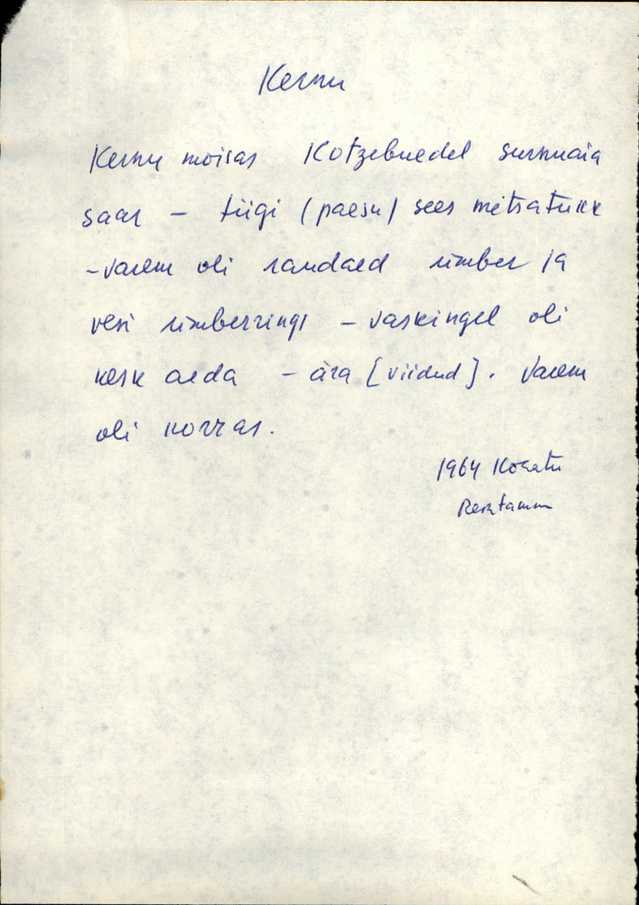 Kernu
Kernu mõisas Kotzebuedel surnuaia
saar – tiigi (paesu) sees metsatukk
– varem oli raudaed ümber ja
vesi ümberringi – vaskingel oli
kesk aeda – ära [viidud]. Varem
oli korras.
1964 Kohatu